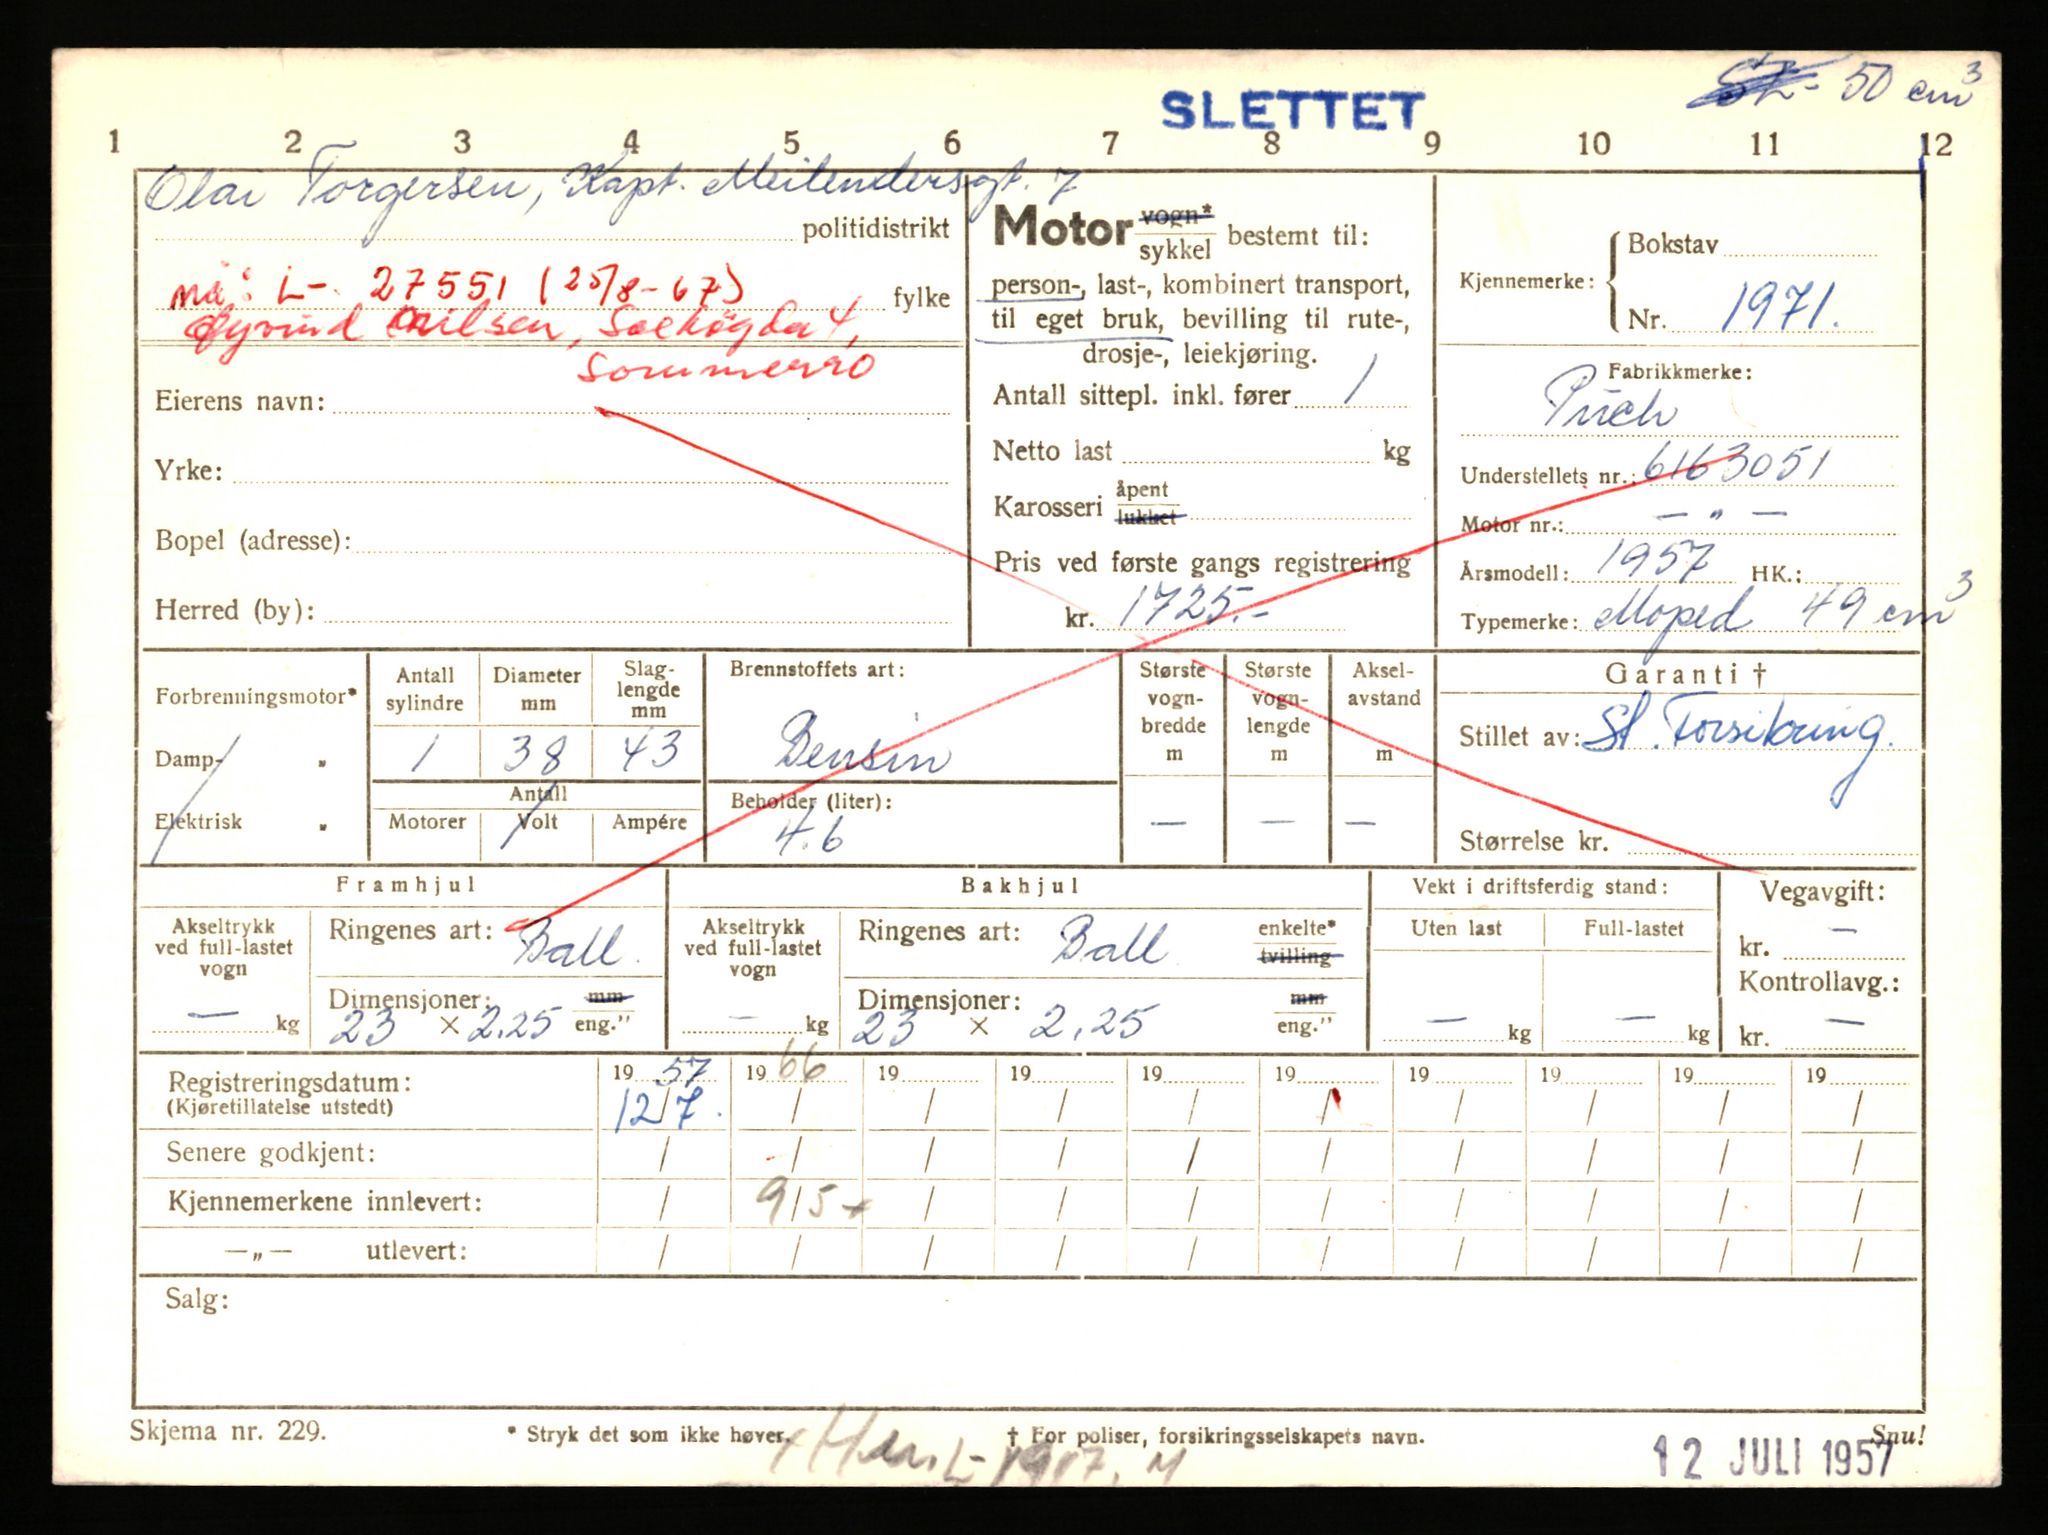 50 cm³
SLETTET
1 2 3 4 5 6 7 8 9 10 11 12
Olai Torgersen, Kapt. Meilendersgt. 7
politidistrikt
nå: L- 27551 (25/8-67)
fylke
Øyvind Nilsen, 4,
Sommerro
Eierens navn:
Yrke:
Bopel (adresse):
Herred (by):
Motor vogn* sykkel bestemt til:
person-, last-, kombinert transport,
til eget bruk, bevilling til rute-,
drosje-, leiekjøring.
Antall sittepl. inkl. fører 1
Netto last kg
Karosseri åpent lukket
Pris ved første gangs registrering
kr. 1725.-
Kjennemerke: Bokstav
Nr. 1971.
Fabrikkmerke:
Puch
Understellets nr.: 6163051
Motor nr.: — „ —
Årsmodell: 1957 HK.:
Typemerke: Moped 49 cm³
Forbrenningsmotor*
Damp- „
Elektrisk „
Antall sylindre
Diameter mm
Slaglengde mm
1 38 43
Antall
Motorer Volt Ampére
Brennstoffets art:
Bensin
Beholder (liter):
4.6
Største vogn-bredde m
Største vogn-lengde m
Aksel-avstand m
— — —
Garanti †
Stillet av: St. Forsikring.
Størrelse kr.
Framhjul
Akseltrykk ved full-lastet vogn
— kg
Ringenes art: Ball
Dimensjoner: mm
23 × 2.25 eng."
Bakhjul
Akseltrykk ved full-lastet vogn
— kg
Ringenes art: Ball enkelte* tvilling
Dimensjoner: mm
23 × 2,25 eng."
Vekt i driftsferdig stand:
Uten last Full-lastet
— kg — kg
Vegavgift:
kr. —
Kontrollavg.:
kr. —
Registreringsdatum: 19 57 19 66 19 19 19 19 19 19 19 19
(Kjøretillatelse utstedt) 12/7. / / / / / / / / /
Senere godkjent: / / / / / / / / / /
Kjennemerkene innlevert: / 9/5 / / / / / / / /
—„— utlevert: / / / / / / / / / /
Salg:
Skjema nr. 229.
* Stryk det som ikke høver.
† For poliser, forsikringsselskapets navn.
Snu!
12 JULI 1957